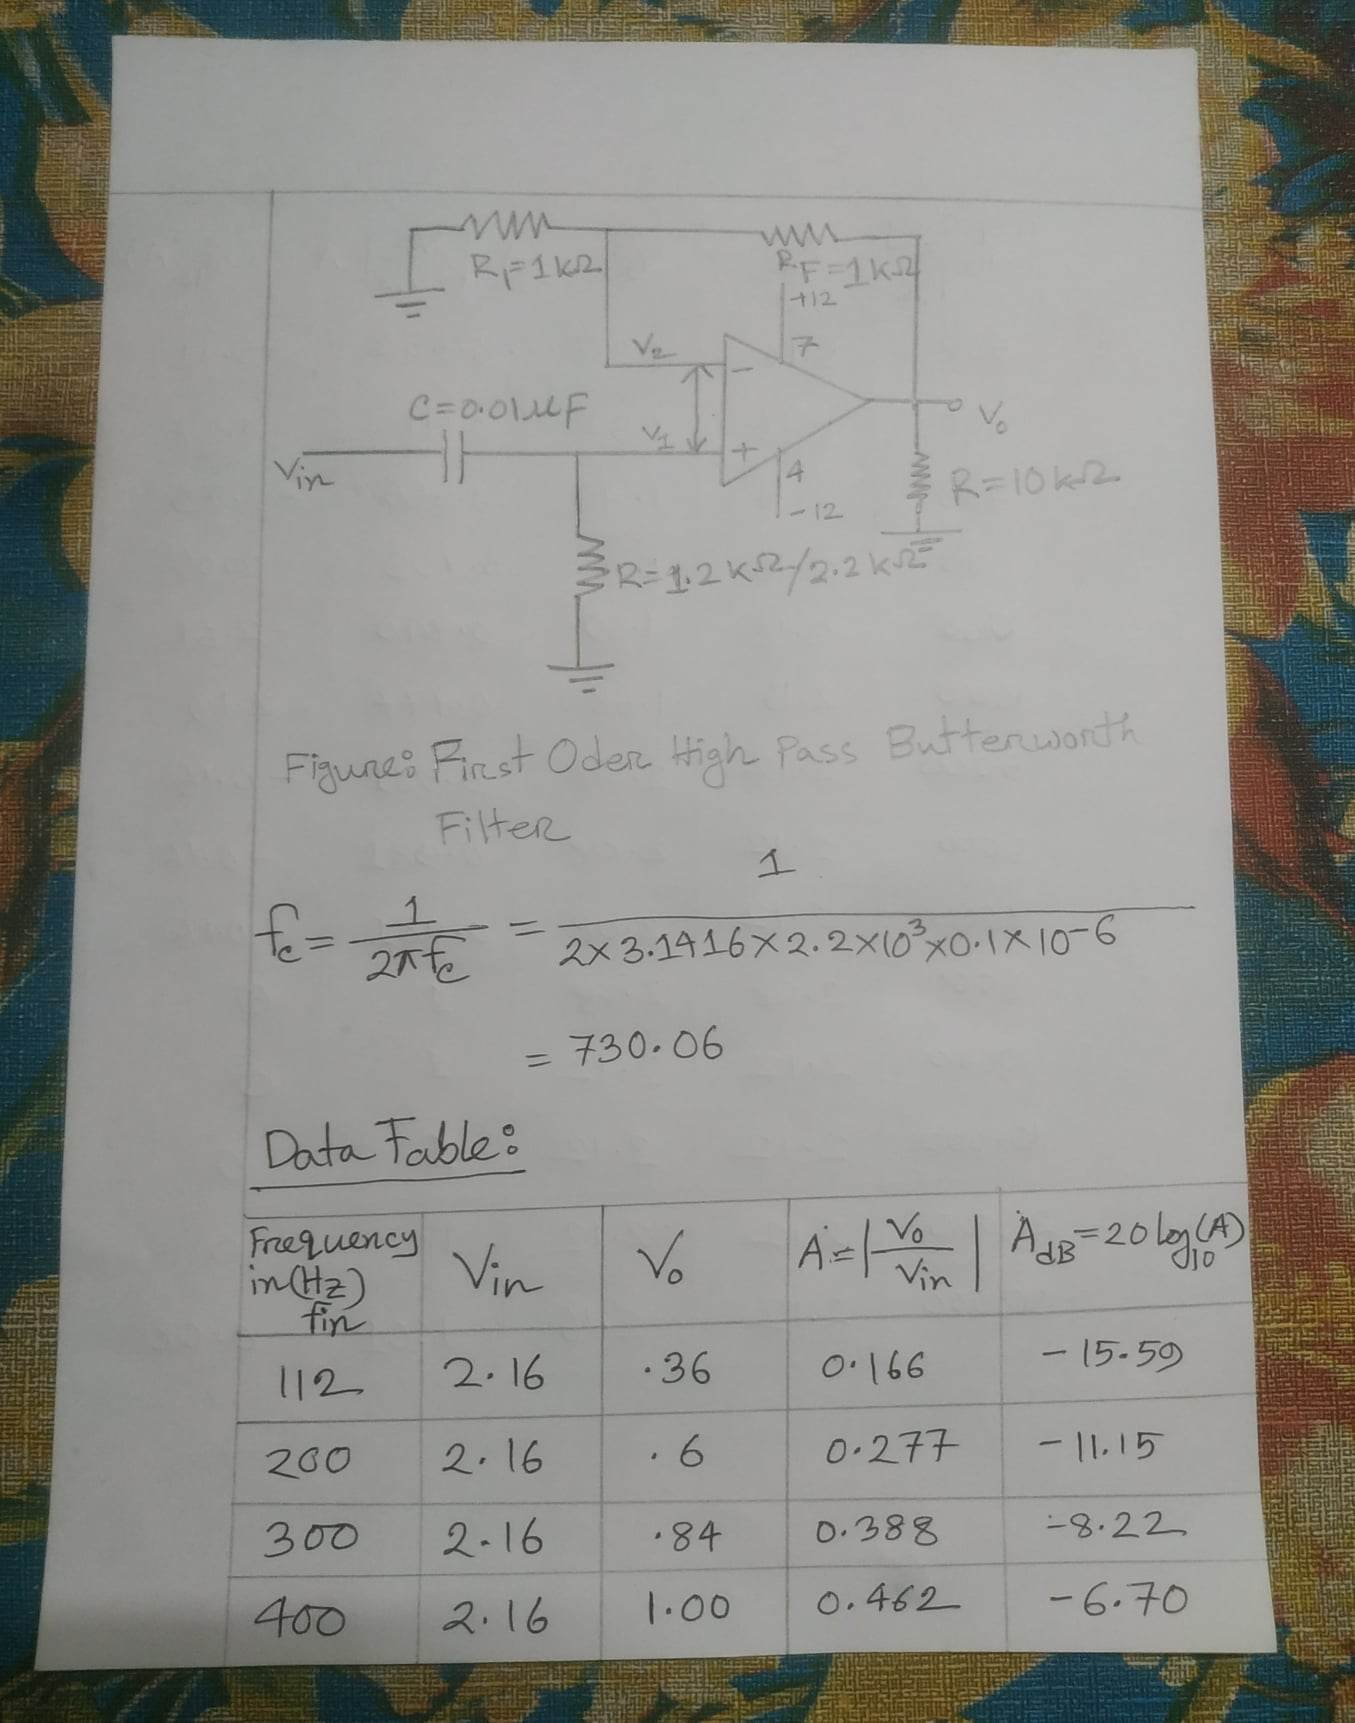 R₁=1kΩ
RF=1kΩ
+12
7
V₂
−
C=0.01μF
V₀
V₁
+
Vin
4
R=10kΩ
-12
R=1.2kΩ/2.2kΩ
Figure: First Oder High Pass Butterworth
Filter
fc = 1/2πfc = 1/2×3.1416×2.2×10³×0.1×10-6
= 730.06
Data Table:
Frequency in(Hz) fin Vin V₀ A=|V₀/Vin| AdB=20log₁₀(A)
112 2.16 .36 0.166 -15.59
200 2.16 .6 0.277 -11.15
300 2.16 .84 0.388 -8.22
400 2.16 1.00 0.462 -6.70